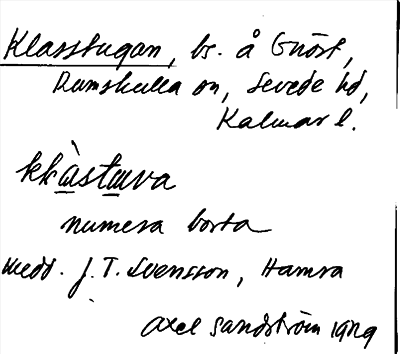 Klasstugan, bs. å Gnöst,
Rumskulla sn, Sevede hd,
Kalmar l.
kkàstuva
numera borta
Medd. J. T. Svensson, Hamra
Axel Sandström 1929